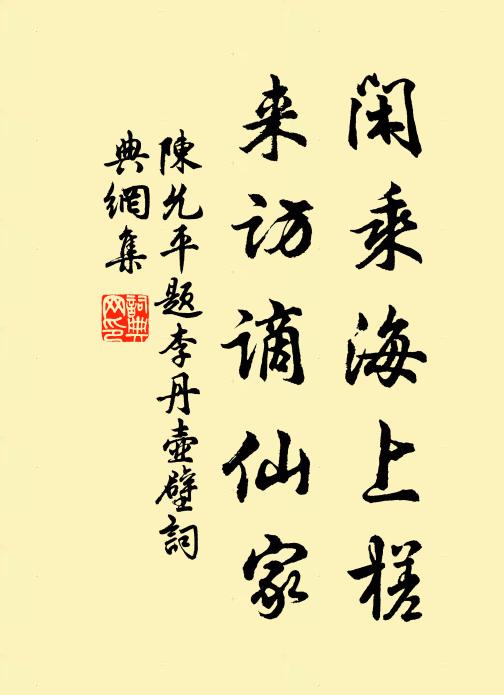 闲乘海上槎
来访谪仙家
陳允平題李丹壺壁詞
典網集
詞典網印